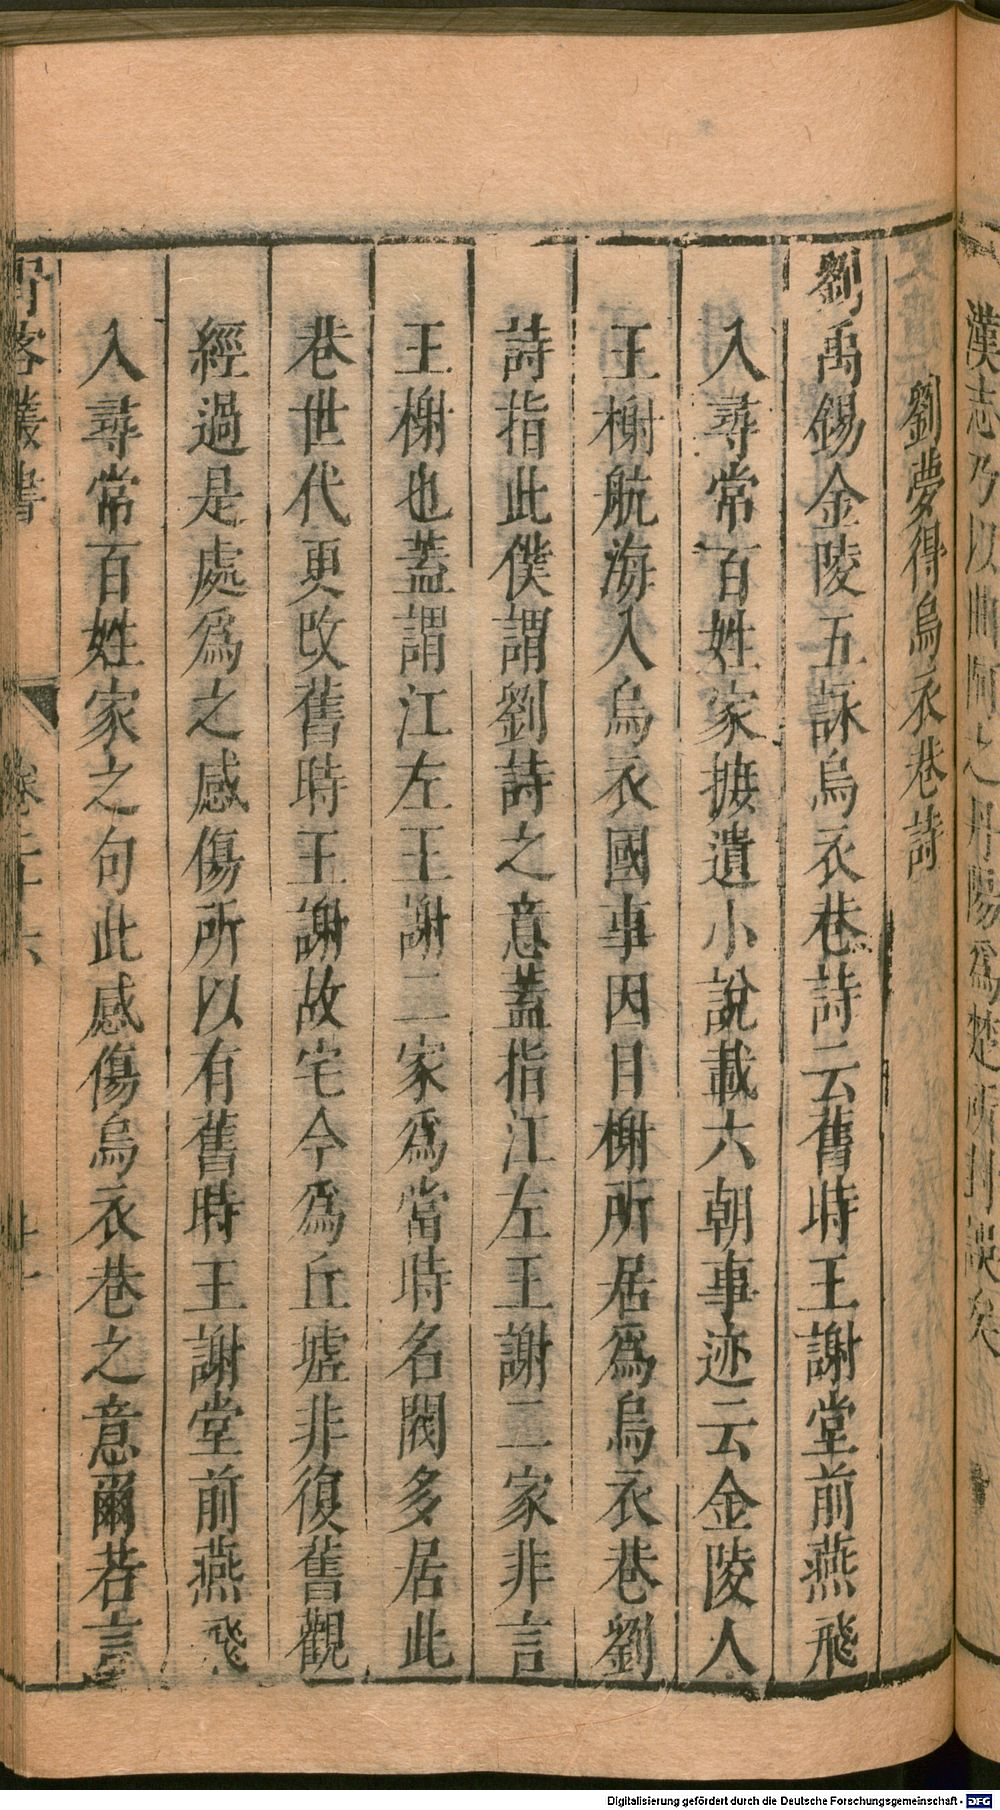 漢志乃以曲阿之丹陽爲楚所封誤矣
劉夢得烏衣巷詩
劉禹錫金陵五詠烏衣巷詩云舊時王謝堂前燕飛
入尋常百姓家摭遺小說載六朝事迹云金陵人
王榭航海入烏衣國事因目榭所居爲烏衣巷劉
詩指此僕謂劉詩之意蓋指江左王謝二家非言
王榭也蓋謂江左王謝二家爲當時名閥多居此
巷世代更改舊時王謝故宅今爲丘墟非復舊觀
經過是處爲之感傷所以有舊時王謝堂前燕飛
入尋常百姓家之句此感傷烏衣巷之意爾若言
野客叢書
卷二十六
Digitalisierung gefördert durch die Deutsche Forschungsgemeinschaft - DFG